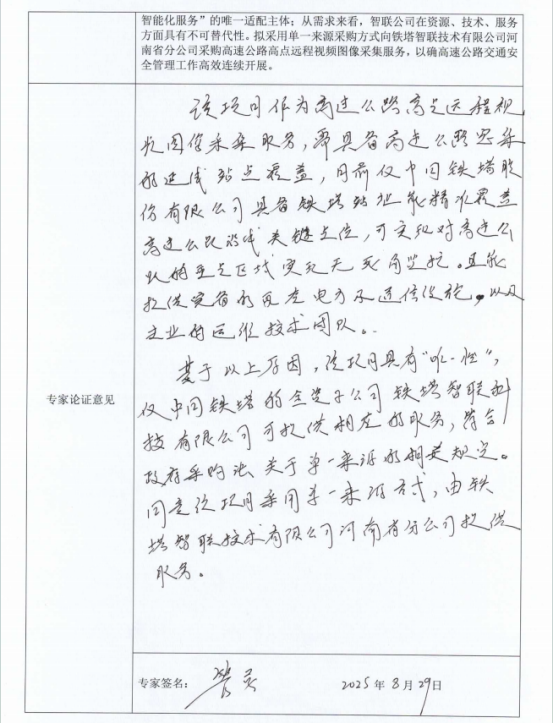 智能化服务”的唯一适配主体；从需求来看，智联公司在资源、技术、服务
方面具有不可替代性。拟采用单一来源采购方式向铁塔智联技术有限公司河
南省分公司采购高速公路高点远程视频图像采集服务，以确高速公路交通安
全管理工作高效连续开展。
专家论证意见
该项目作为高速公路高点远程视
频图像采集服务，需具备高速公路密集
的沿线站点覆盖，目前仅中国铁塔股
份有限公司具备铁塔站址能精准覆盖
高速公路沿线关键点位，可实现对高速公
路的重点区域实现无死角监控。且能
提供完备的用电电力及通信设施，以及
专业的运维技术团队。
基于以上原因，该项目具有“唯一性”，
仅中国铁塔的全资子公司铁塔智联科
技有限公司可提供相应的服务，符合
政府采购法关于单一来源的相关规定。
同意该项目采用单一来源方式，由铁
塔智联技术有限公司河南省分公司提供
服务。
专家签名：
2025年8月29日